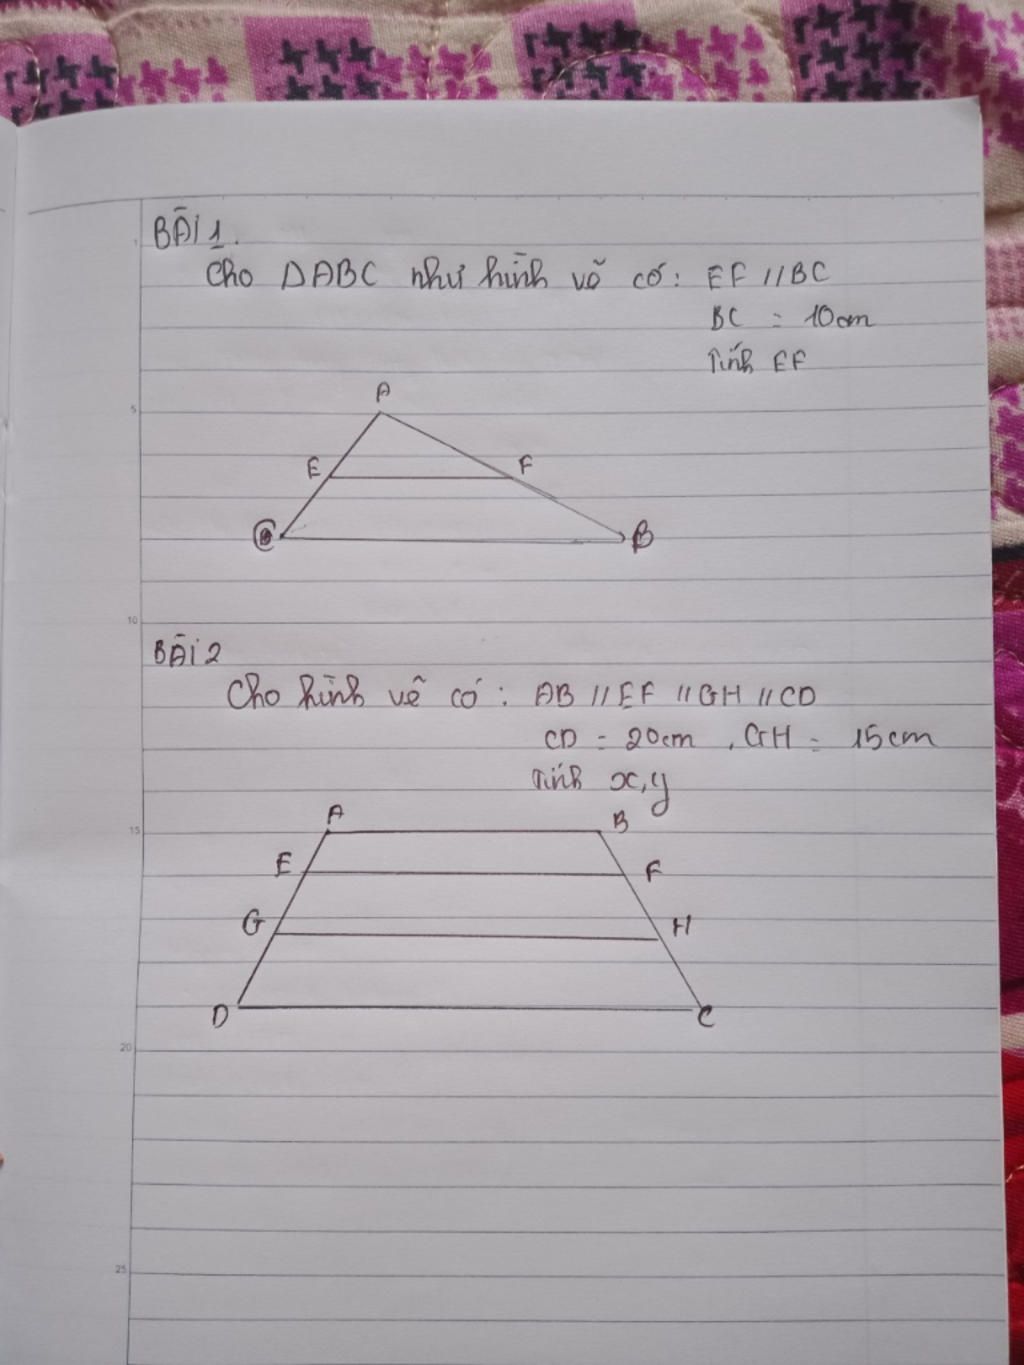 BÀI 1.
Cho ΔABC như hình vẽ có: EF // BC
BC = 10cm
Tính EF
A
E F
C B
BÀI 2
Cho hình vẽ có: AB // EF // GH // CD
CD = 20cm, GH = 15cm
Tính x, y
A B
E F
G H
D C
1
5
10
15
20
25